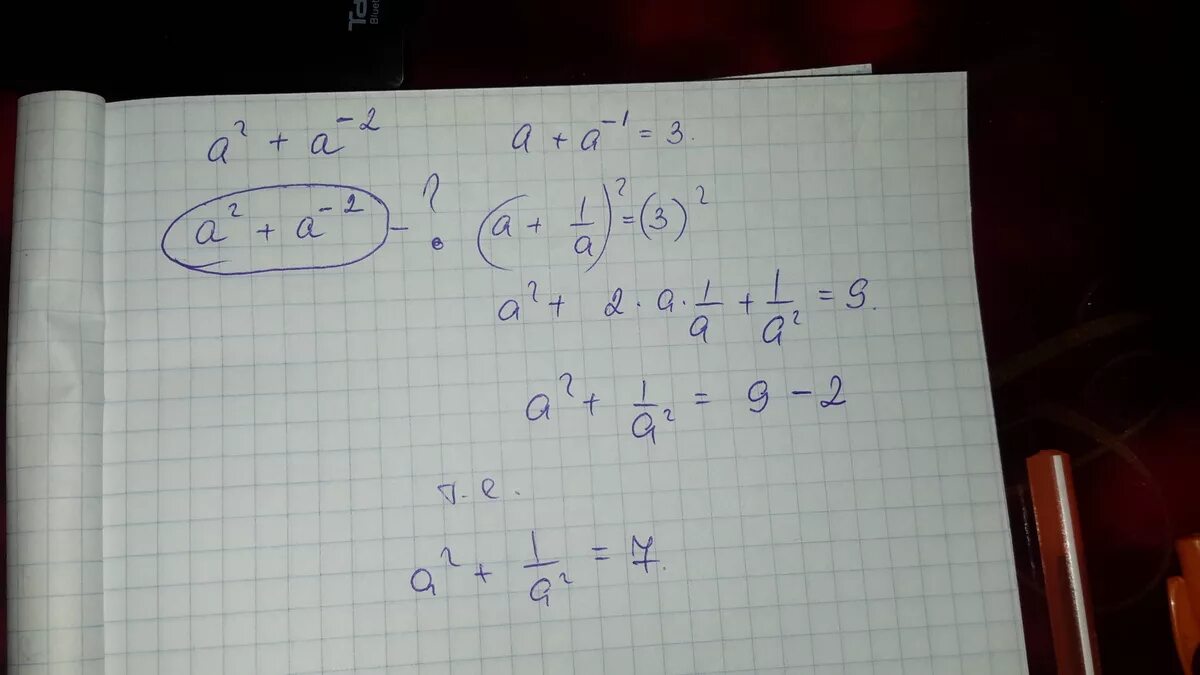 a² + a⁻²
a + a⁻¹ = 3.
a² + a⁻² - ?
(a + 1/a)² = (3)²
a² + 2 · a · 1/a + 1/a² = 9.
a² + 1/a² = 9 - 2
т.е.
a² + 1/a² = 7.